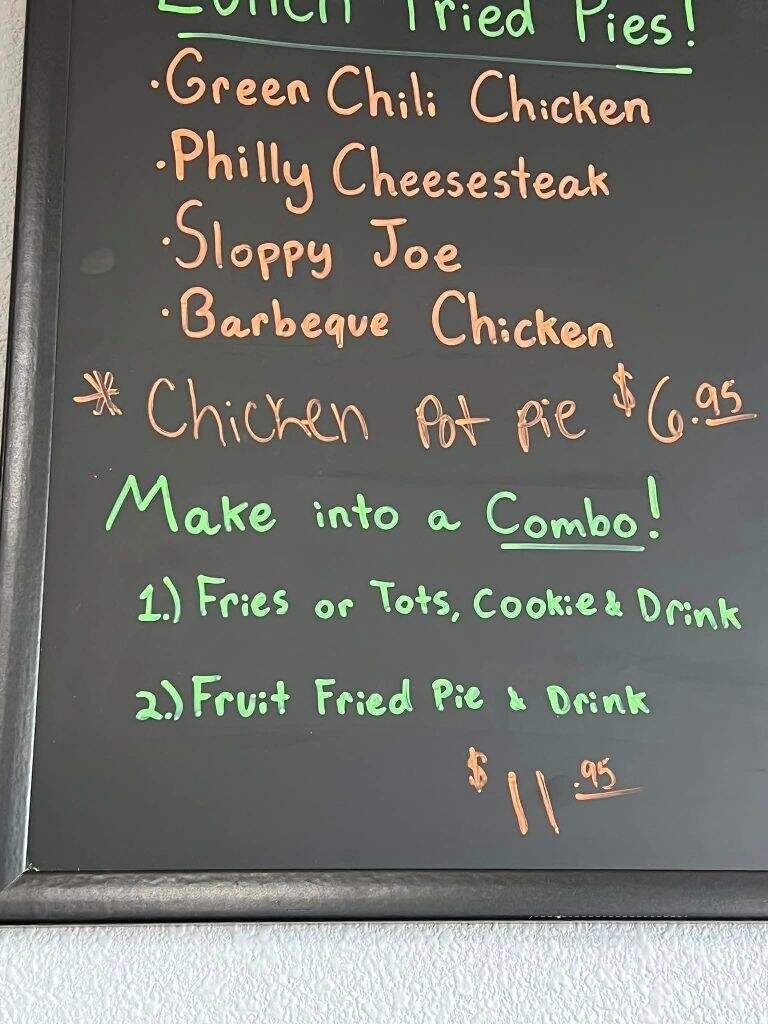 Lunch Fried Pies!
·Green Chili Chicken
·Philly Cheesesteak
·Sloppy Joe
·Barbeque Chicken
* Chicken Pot Pie $6.95
Make into a Combo!
1.) Fries or Tots, Cookie & Drink
2.) Fruit Fried Pie & Drink
$11.95